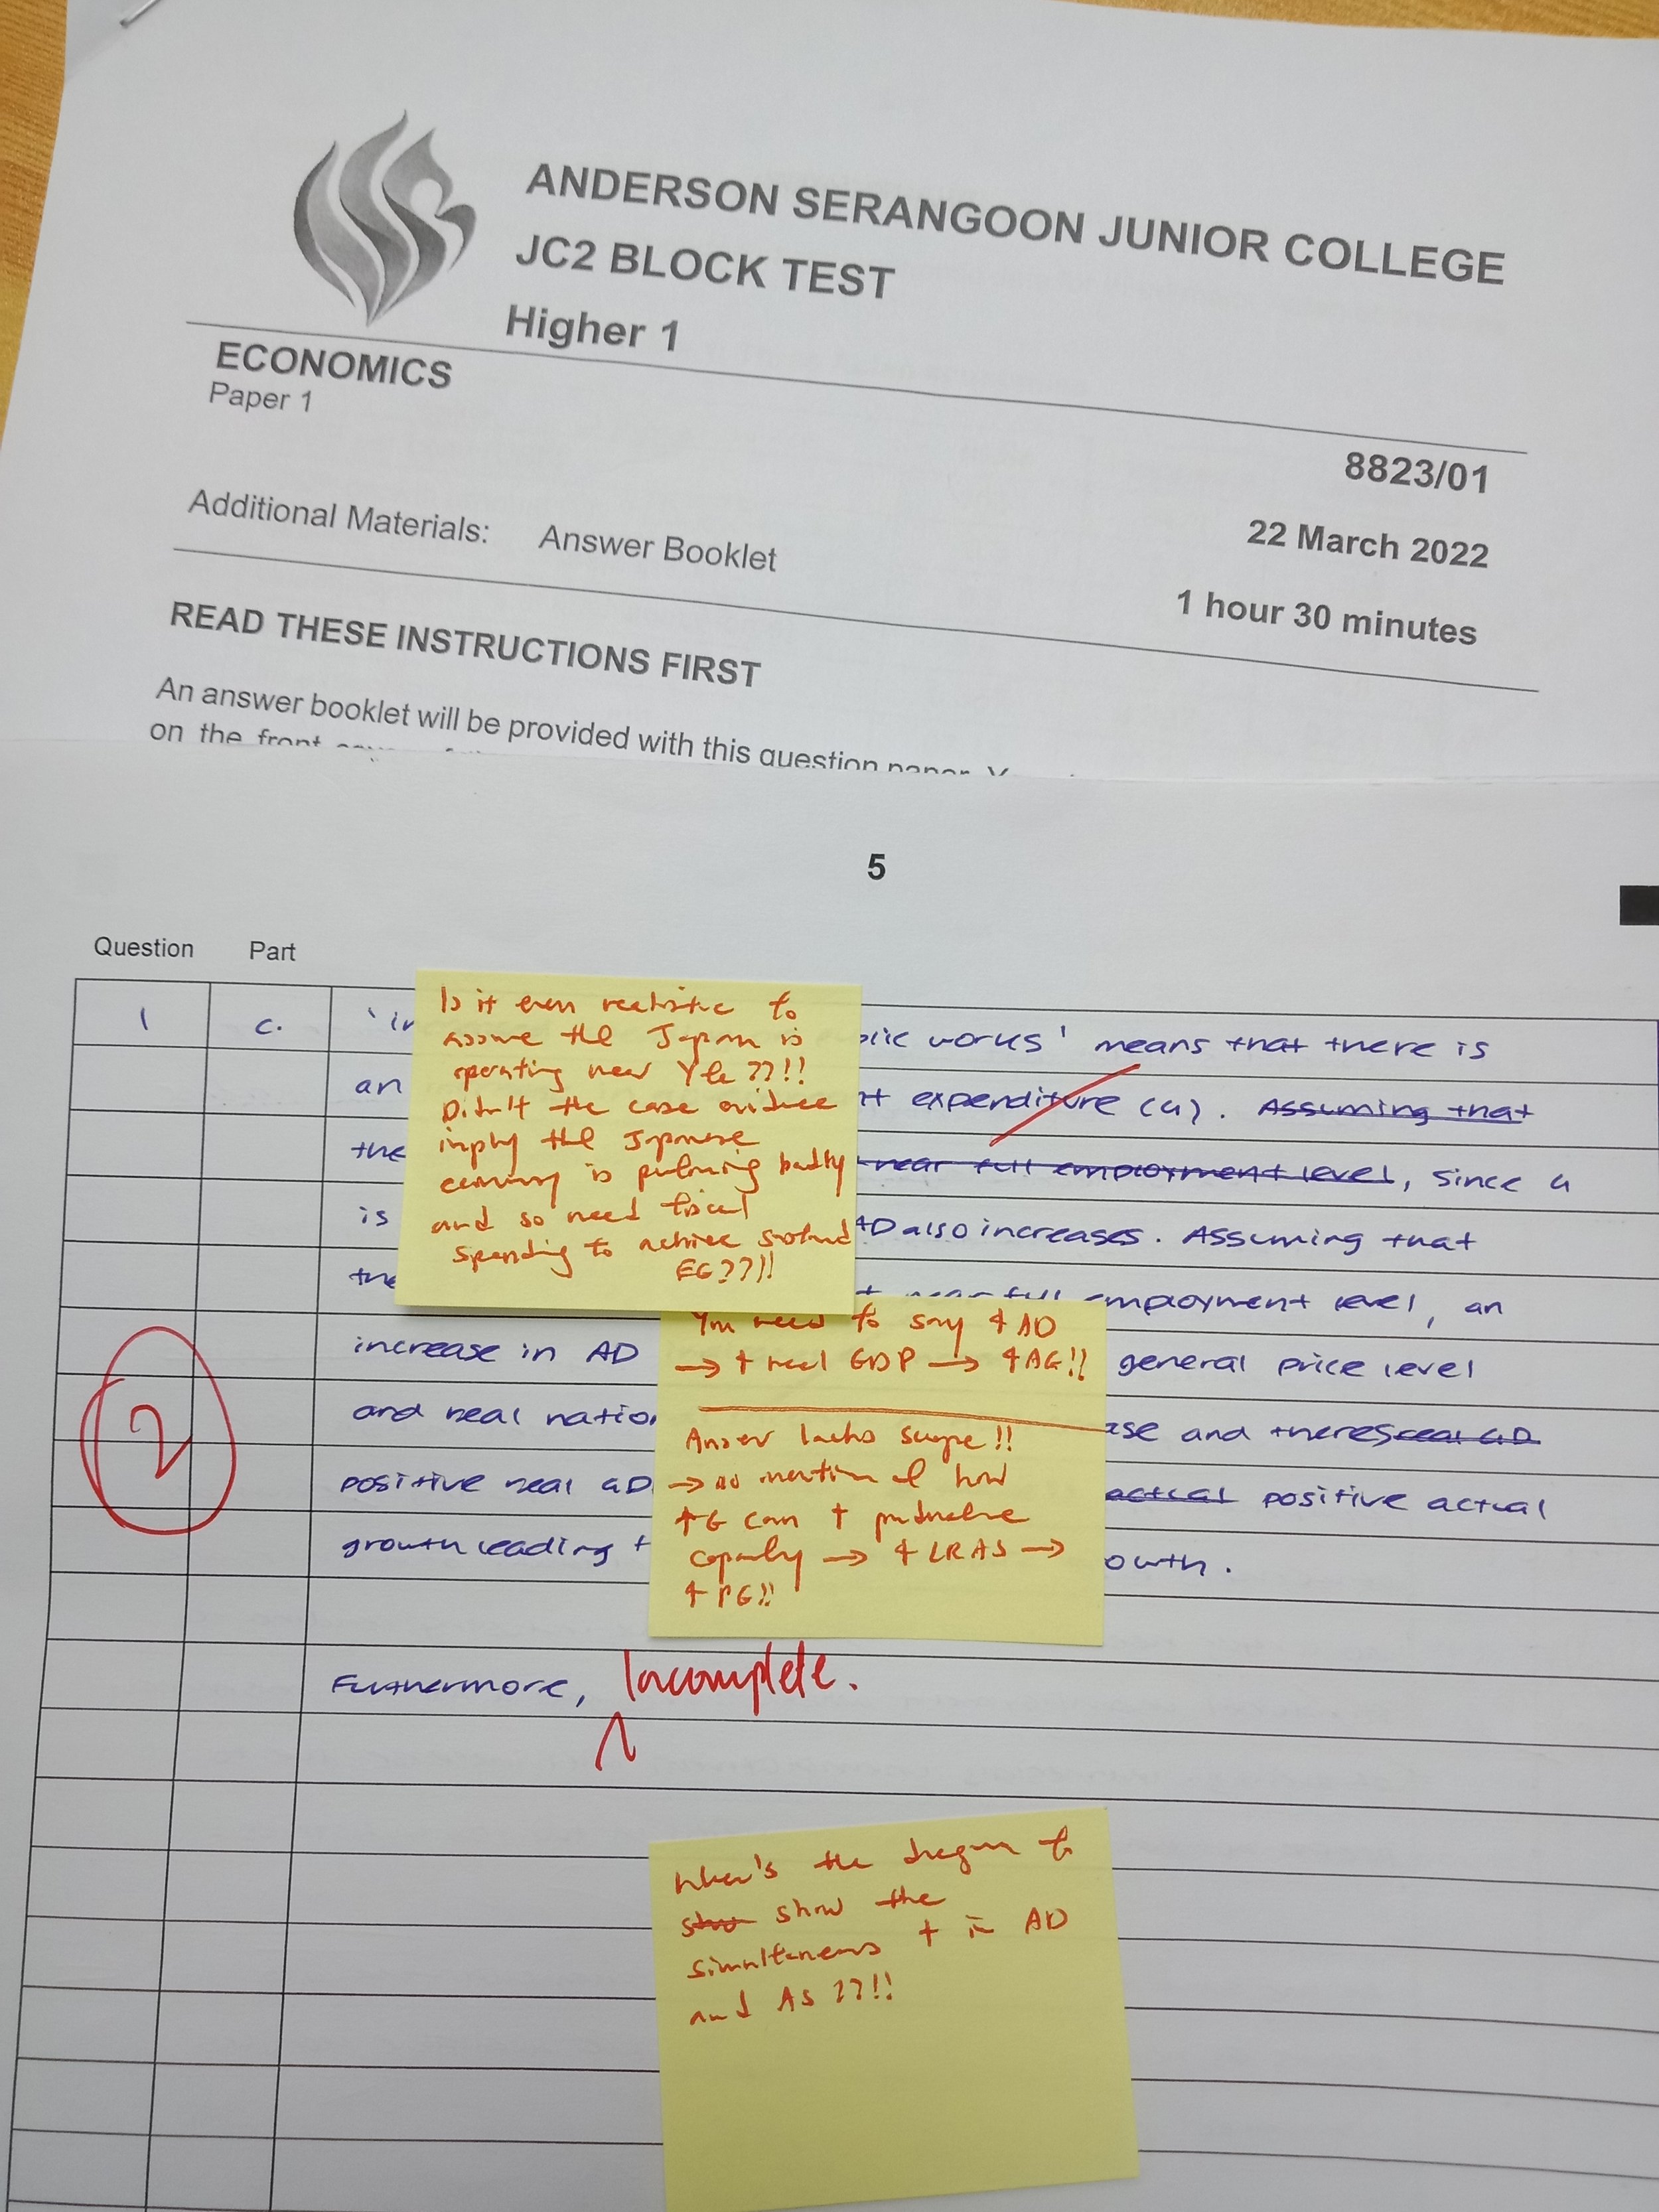 ANDERSON SERANGOON JUNIOR COLLEGE
JC2 BLOCK TEST
Higher 1
ECONOMICS
Paper 1
8823/01
22 March 2022
Additional Materials: Answer Booklet
1 hour 30 minutes
READ THESE INSTRUCTIONS FIRST
An answer booklet will be provided with this question paper.
on the front
5
Question Part
1 c. works' means that there is
an expenditure (G). Assuming that
the near full employment level, since G
is AD also increases. Assuming that
the employment level, an
increase in AD general price level
and real and
positive real actual positive actual
growth leading
Furthermore, Incomplete.
2
Is it even realistic to
assume the Japan is
operating near Yfe??!!
Didn't the case evidence
imply the Japanese
economy is performing badly
and so need fiscal
spending to achieve
EG??!!
You need to say ↑AD
→ ↑ real GDP → ↑AG!!
Answer lacks scope!!
→ no mention of how
↑G can ↑ productive
capacity → ↑ LRAS →
↑ PG!!
Where's the diagram to
show the
simultaneous ↑ in AD
and AS ??!!